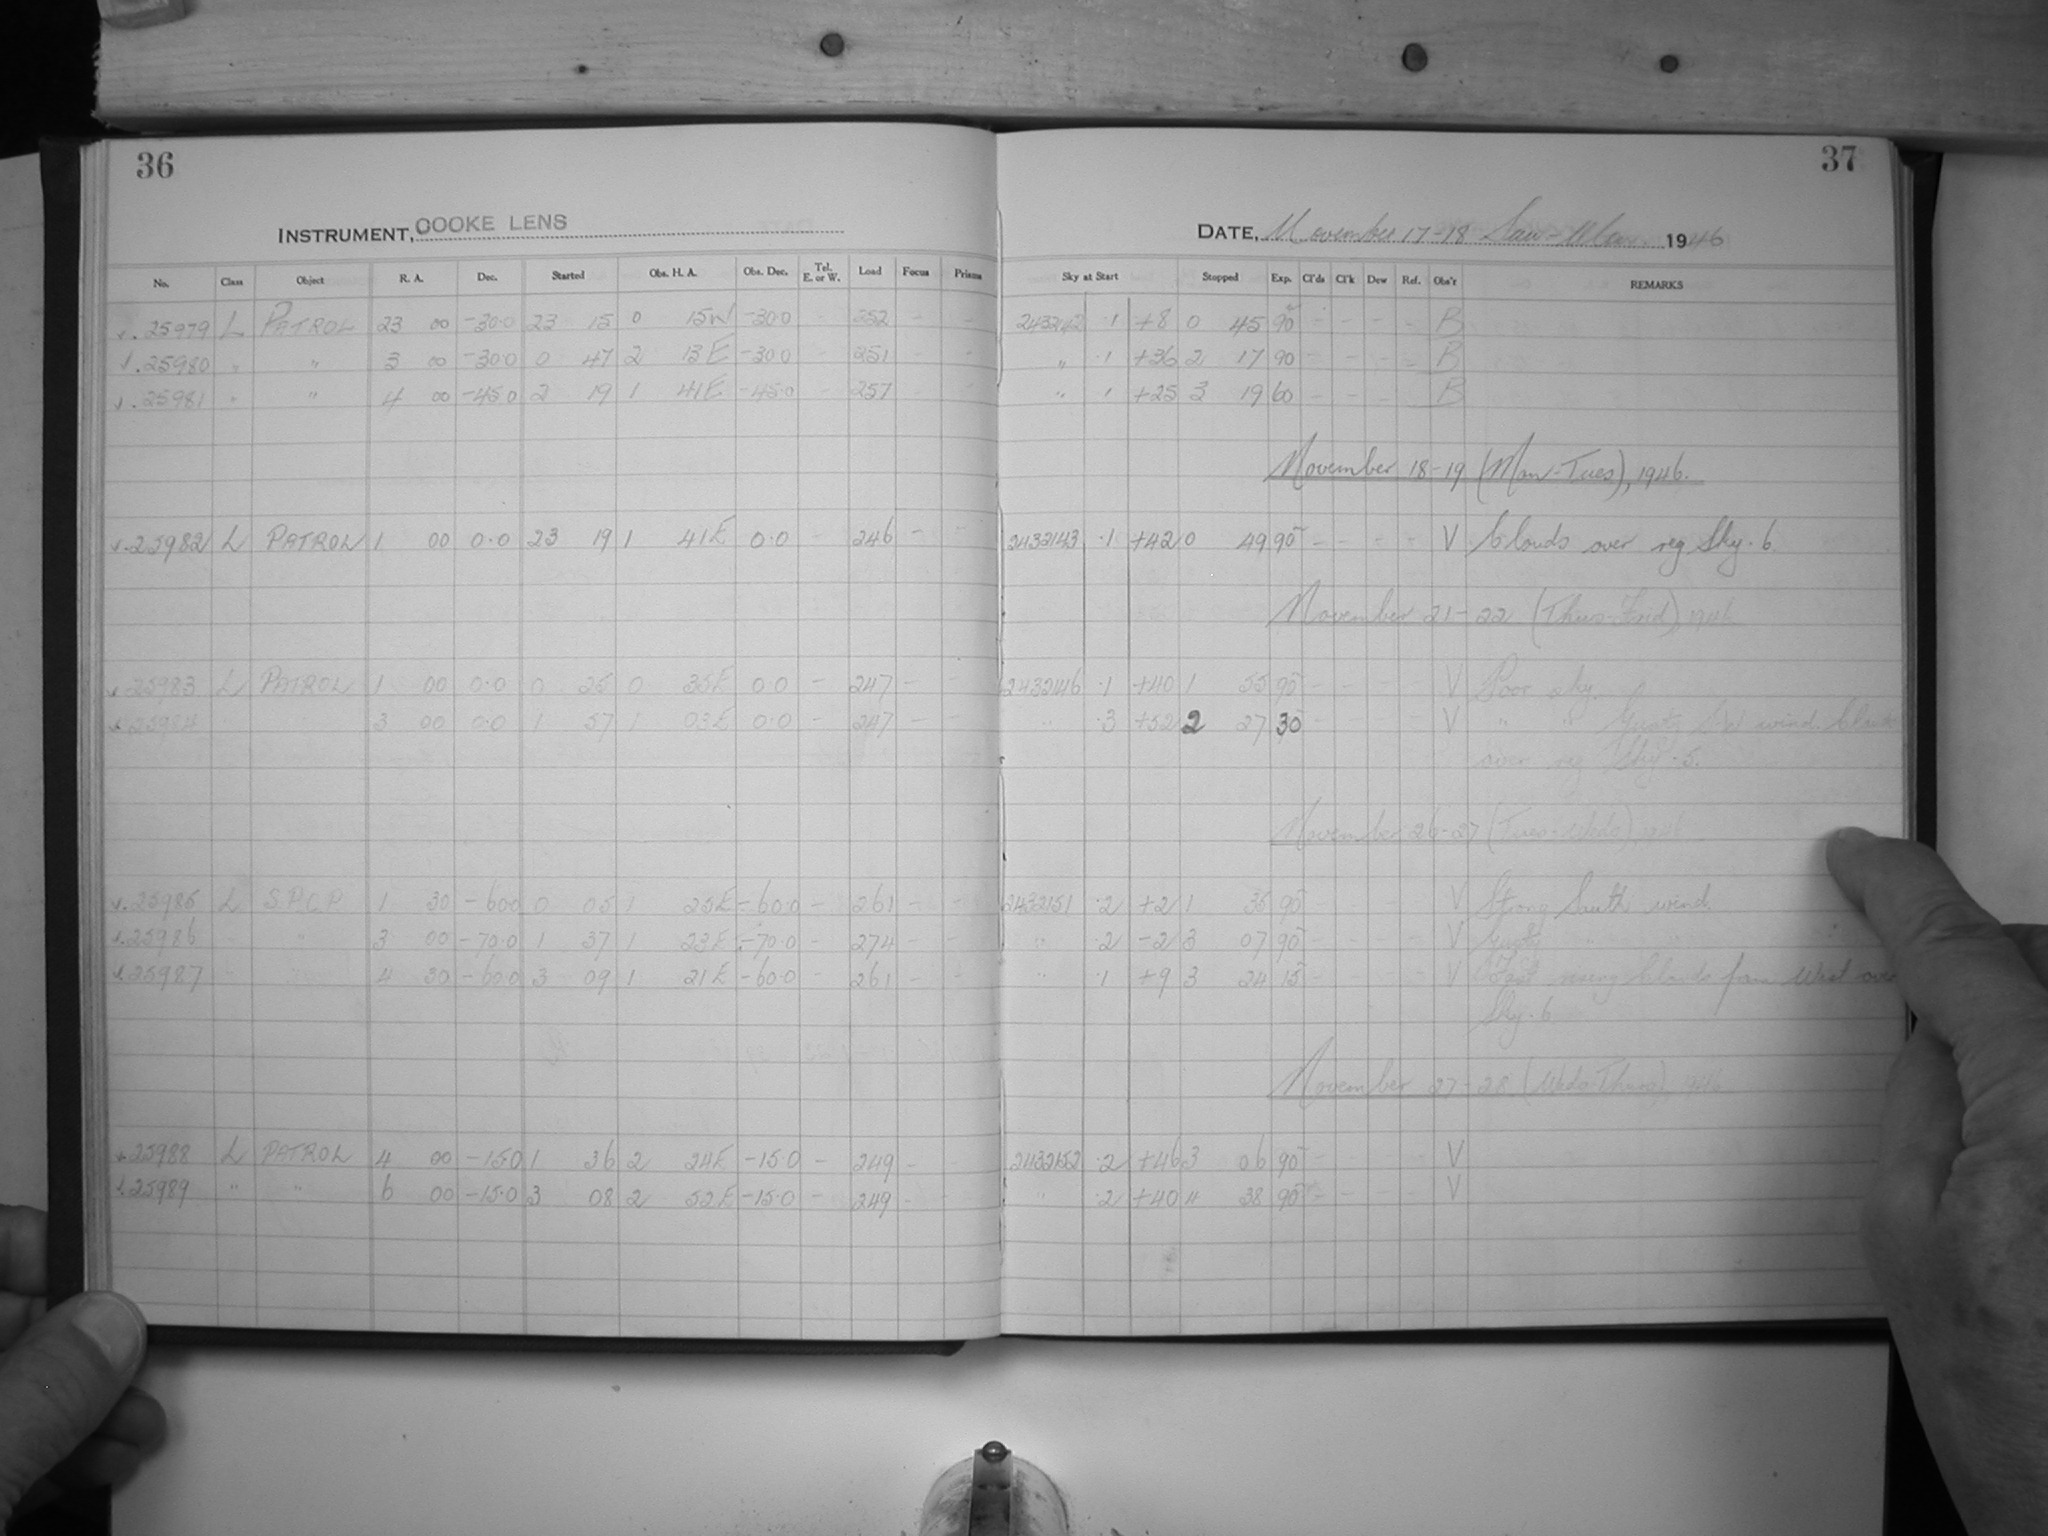 36
INSTRUMENT, COOKE LENS
No. Class Object R. A. Dec. Started Obs. H. A. Obs. Dec. Tel. E. or W. Load Focus Prisms
25979 L PATROL 23 00 -30.0 23 15 0 15W -30.0 - 252 - -
25980 " " 3 00 -30.0 0 47 2 13E -30.0 - 251 - -
25981 " " 4 00 -45.0 2 19 1 41E -45.0 - 257 - -
25982 L PATROL 1 00 0.0 23 19 1 41E 0.0 - 246 - -
25983 L PATROL 1 00 0.0 0 25 0 35E 0.0 - 247 - -
25984 3 00 0.0 1 57 1 03E 0.0 - 247 - -
25985 L S.P.C.P 1 30 -60.0 0 05 1 25E -60.0 - 261 - -
25986 " " 3 00 -70.0 1 37 1 23E -70.0 - 274 - -
25987 4 30 -60.0 3 09 1 21E -60.0 - 261 - -
25988 L PATROL 4 00 -15.0 1 36 2 24E -15.0 - 249 - -
25989 " " 6 00 -15.0 3 08 2 52E -15.0 - 249 - -
37
DATE, November 17-18 Sun-Mon 1946
Sky at Start Stopped Exp. Cl'ds Cl'k Dew Ref. Obs'r REMARKS
2432142 .1 +8 0 45 90 - - - - B
" .1 +36 2 17 90 - - - - B
" .1 +25 3 19 60 - - - - B
November 18-19 (Mon-Tues), 1946.
2432143 .1 +42 0 49 90 - - - - V Clouds over reg Sky .6
November 21-22 (Thurs-Frid), 1946
2432146 .1 +40 1 55 90 - - - - V Poor sky.
" .3 +52 2 27 30 - - - - V " " Gusty wind. Clouds
over reg Sky .5.
November 26-27 (Tues-Weds), 1946
2432151 .2 +2 1 35 90 - - - - V Strong South wind.
" .2 -2 3 07 90 - - - - V Gusty "
" .1 +9 3 24 15 - - - - V Fast rising Clouds from West over
Sky .6
November 27-28 (Weds-Thurs), 1946
2432152 .2 +46 3 06 90 - - - - V
" .2 +40 4 38 90 - - - - V